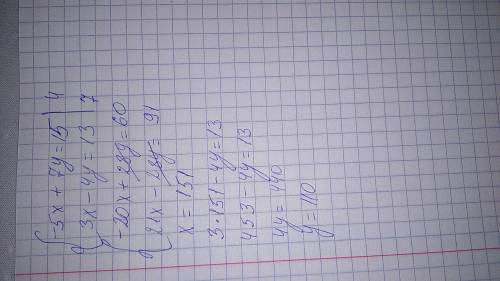 -5x + 7y = 15 | 4
3x - 4y = 13 | 7
-20x + 28y = 60
21x - 28y = 91
x = 151
3·151 - 4y = 13
453 - 4y = 13
4y = 440
y = 110